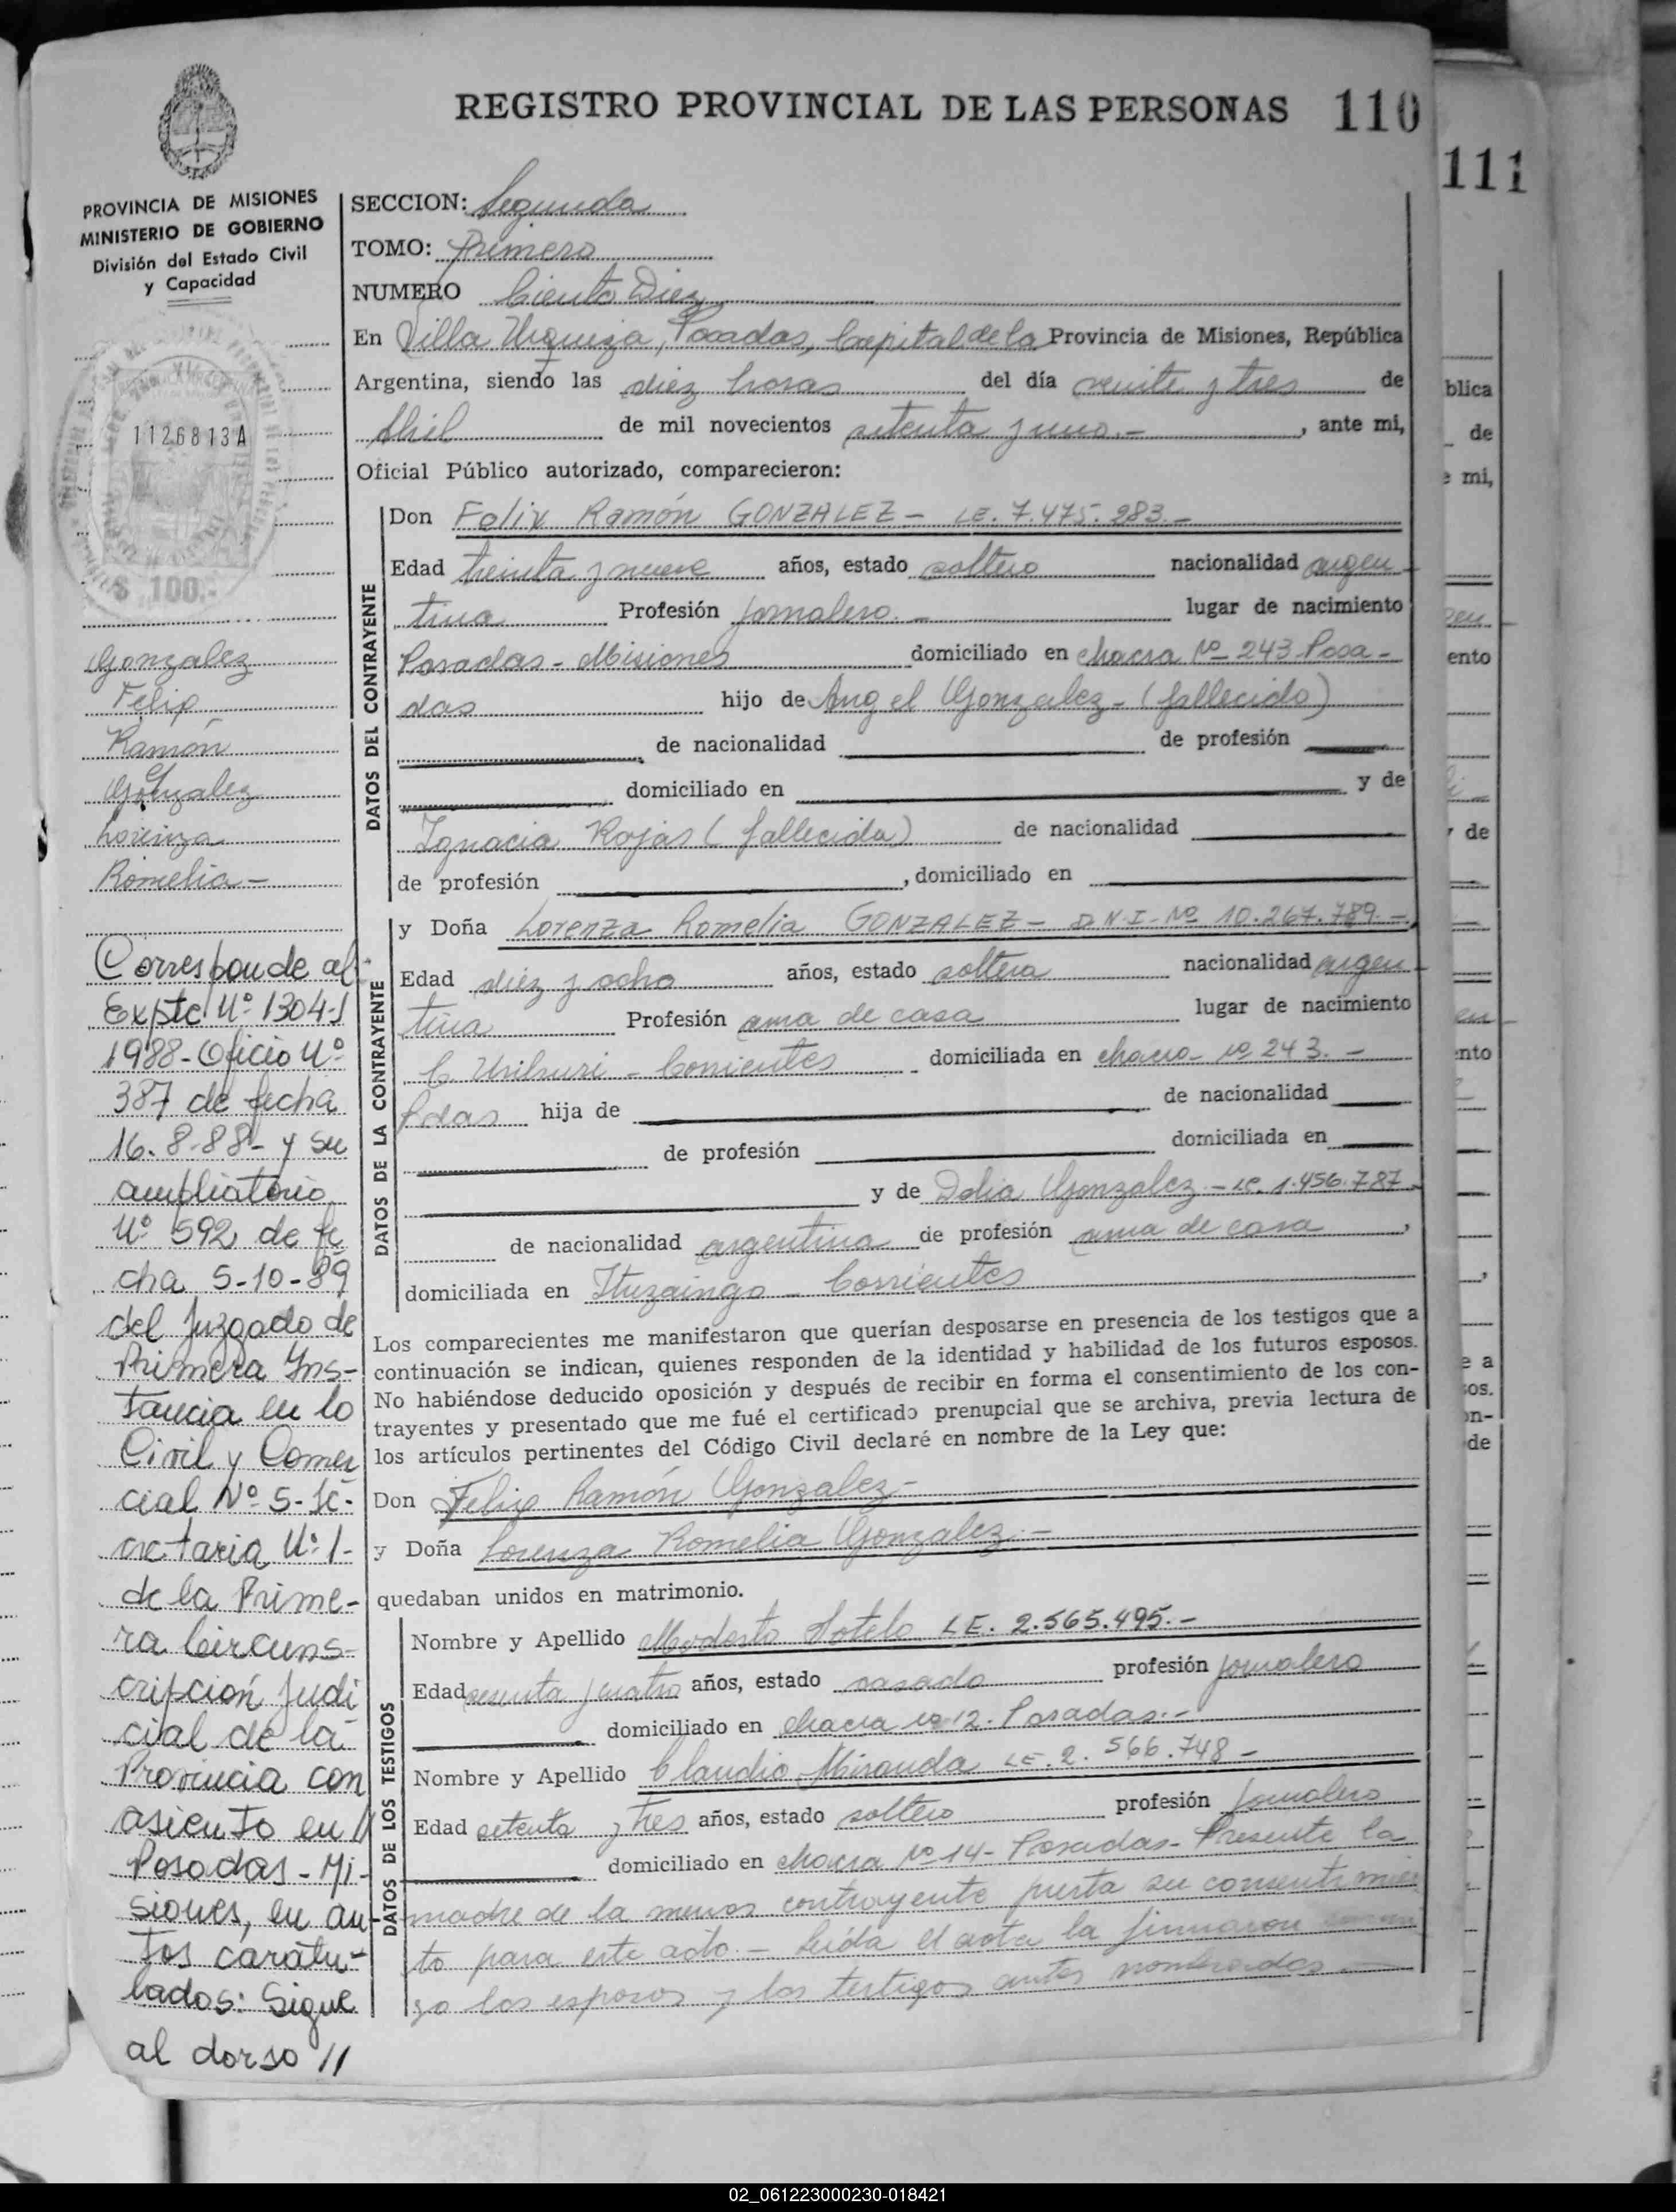 REGISTRO PROVINCIAL DE LAS PERSONAS 110
111
PROVINCIA DE MISIONES
MINISTERIO DE GOBIERNO
División del Estado Civil
y Capacidad
1126813A
$ 100.-
Gonzalez
Felix
Ramón
Gonzalez
Lorenza
Romelia -
Corresponde al
Expte Nº 1304-J
1988 - Oficio Nº
387 de fecha
16-8-88- y su
ampliatorio
Nº 592 de fe
cha 5-10-89
del Juzgado de
Primera Ins-
tancia en lo
Civil y Comer
cial Nº 5 - Se-
cretaria Nº 1-
de la Prime-
ra Circuns-
cripción Judi
cial de la
Provincia con
asiento en //
Posadas - Mi-
siones, en au-
tos caratu-
lados: Sigue
al dorso //
SECCION: Segunda
TOMO: Primero
NUMERO Ciento Diez
En Villa Urquiza, Posadas, Capital de la Provincia de Misiones, República
Argentina, siendo las diez horas del día veinte y tres de
Abril de mil novecientos setenta y uno.- , ante mi,
Oficial Público autorizado, comparecieron:
DATOS DEL CONTRAYENTE
Don Felix Ramón GONZALEZ - LE. 7.475.283.-
Edad treinta y nueve años, estado soltero nacionalidad argen
tina Profesión jornalero.- lugar de nacimiento
Posadas - Misiones domiciliado en chacra Nº 243 Posa-
das hijo de Angel Gonzalez - (fallecido)
de nacionalidad de profesión
domiciliado en y de
Ignacia Rojas (fallecida) de nacionalidad
de profesión , domiciliado en
DATOS DE LA CONTRAYENTE
y Doña Lorenza Romelia GONZALEZ - D.N.I. Nº 10.267.789.-
Edad diez y ocho años, estado soltera nacionalidad argen
tina Profesión ama de casa lugar de nacimiento
C. Uriburi - Corrientes domiciliada en chacra Nº 243.-
Pdas hija de de nacionalidad
de profesión domiciliada en
y de Delia Gonzalez - LC. 1.456.787
de nacionalidad argentina de profesión ama de casa ,
domiciliada en Ituzaingo - Corrientes
Los comparecientes me manifestaron que querían desposarse en presencia de los testigos que a
continuación se indican, quienes responden de la identidad y habilidad de los futuros esposos.
No habiéndose deducido oposición y después de recibir en forma el consentimiento de los con-
trayentes y presentado que me fué el certificado prenupcial que se archiva, previa lectura de
los artículos pertinentes del Código Civil declaré en nombre de la Ley que:
Don Felix Ramón Gonzalez -
y Doña Lorenza Romelia Gonzalez.-
quedaban unidos en matrimonio.
DATOS DE LOS TESTIGOS
Nombre y Apellido Modesto Sotelo LE. 2.565.495.-
Edad sesenta y cuatro años, estado casado profesión jornalero
domiciliado en chacra Nº 12. Posadas.-
Nombre y Apellido Claudio Miranda LE. 2.566.748 -
Edad setenta y tres años, estado soltero profesión jornalero
domiciliado en chacra Nº 14 - Posadas - Presente la
madre de la menor contrayente presta su consentimien
to para este acto.- Leída el acta la firmaron
go los esposos y los testigos antes nombrados.-
blica
de
mi,
ento
de
nto
e a
sos.
on-
de
02_061223000230-018421